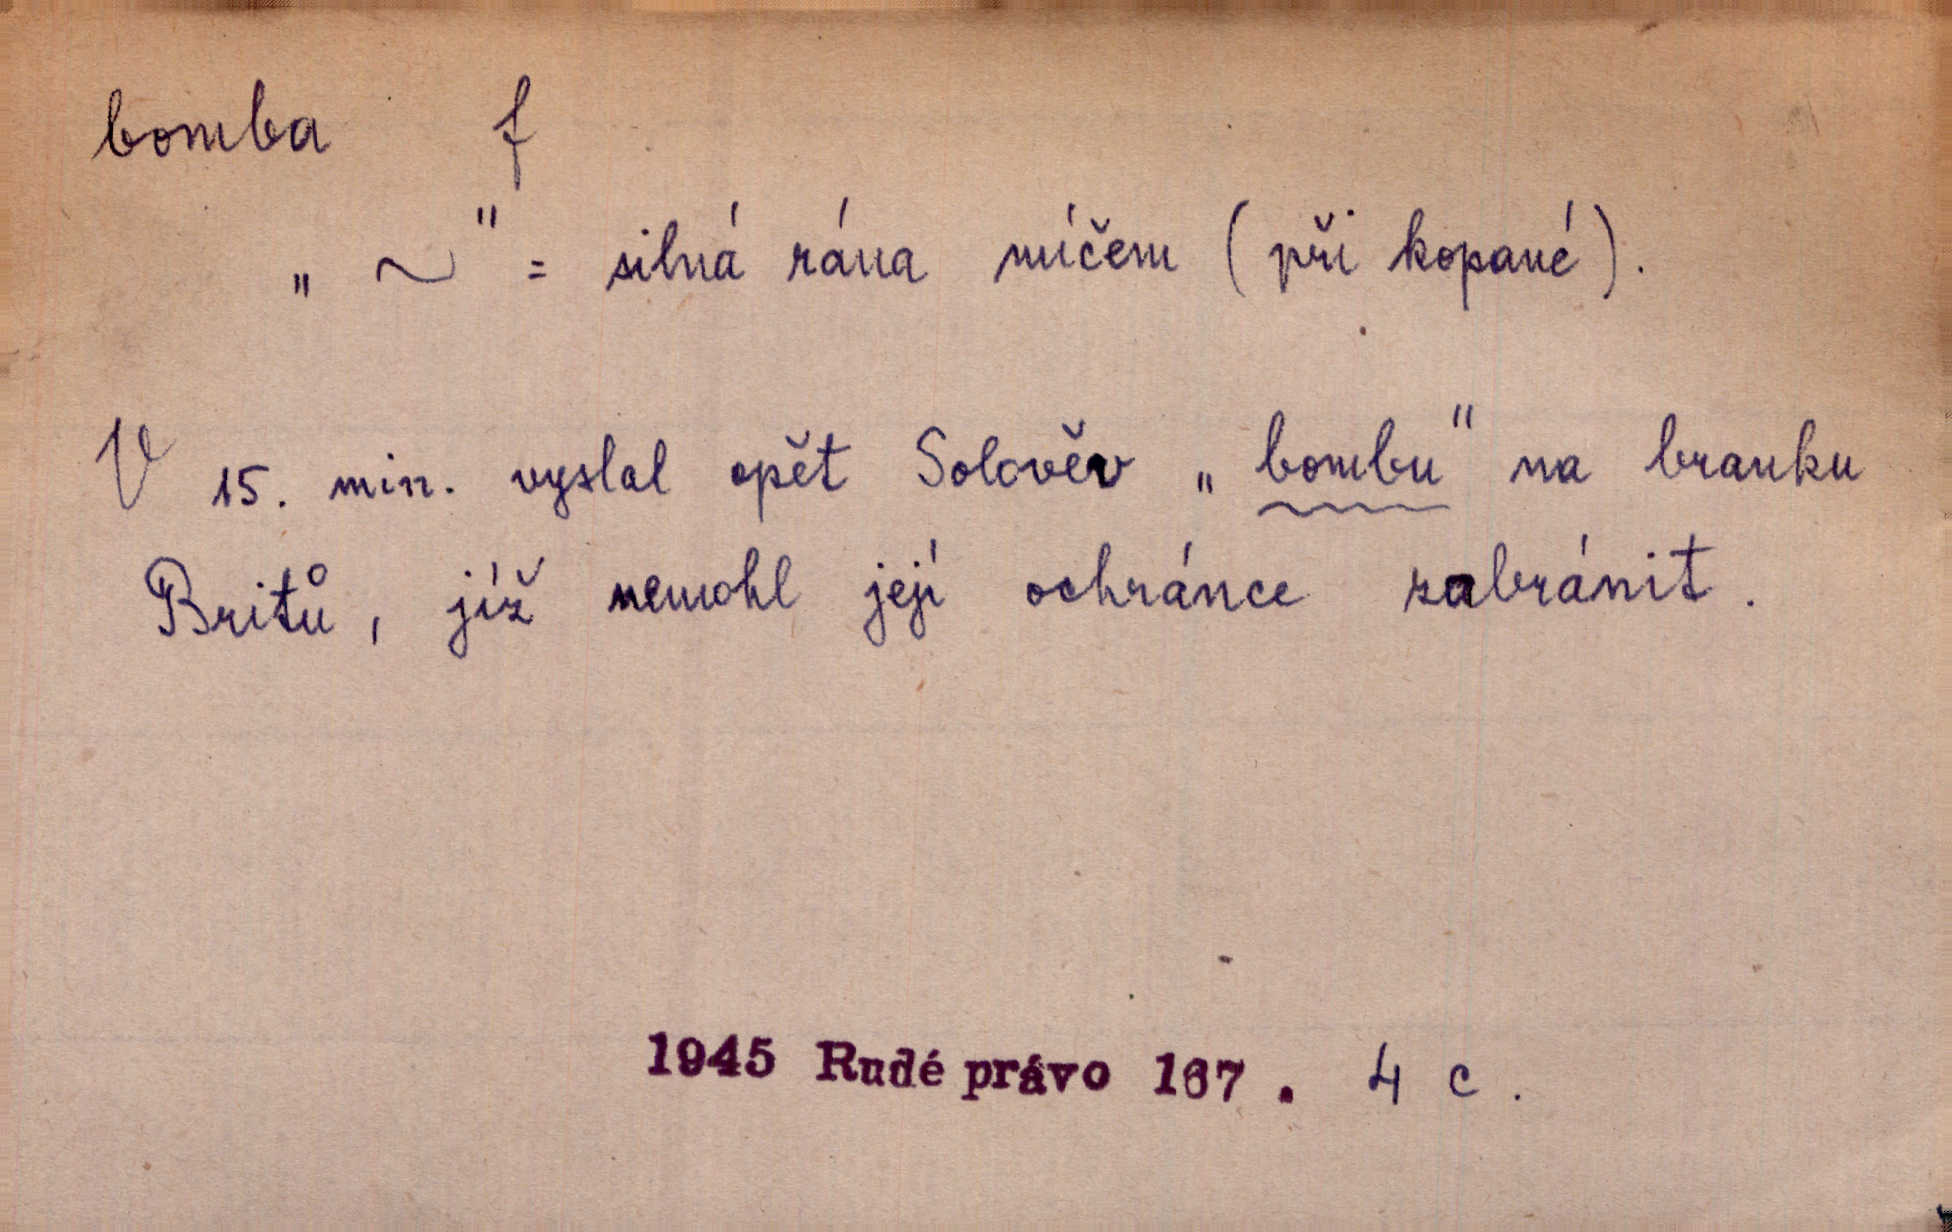 bomba f
„ ~ “ = silná rána míčem (při kopané).
V 15. min. vyslal opět Solověv „bombu“ na branku
Britů, jíž nemohl její ochránce zabránit.
1945 Rudé právo 167. 4 c.